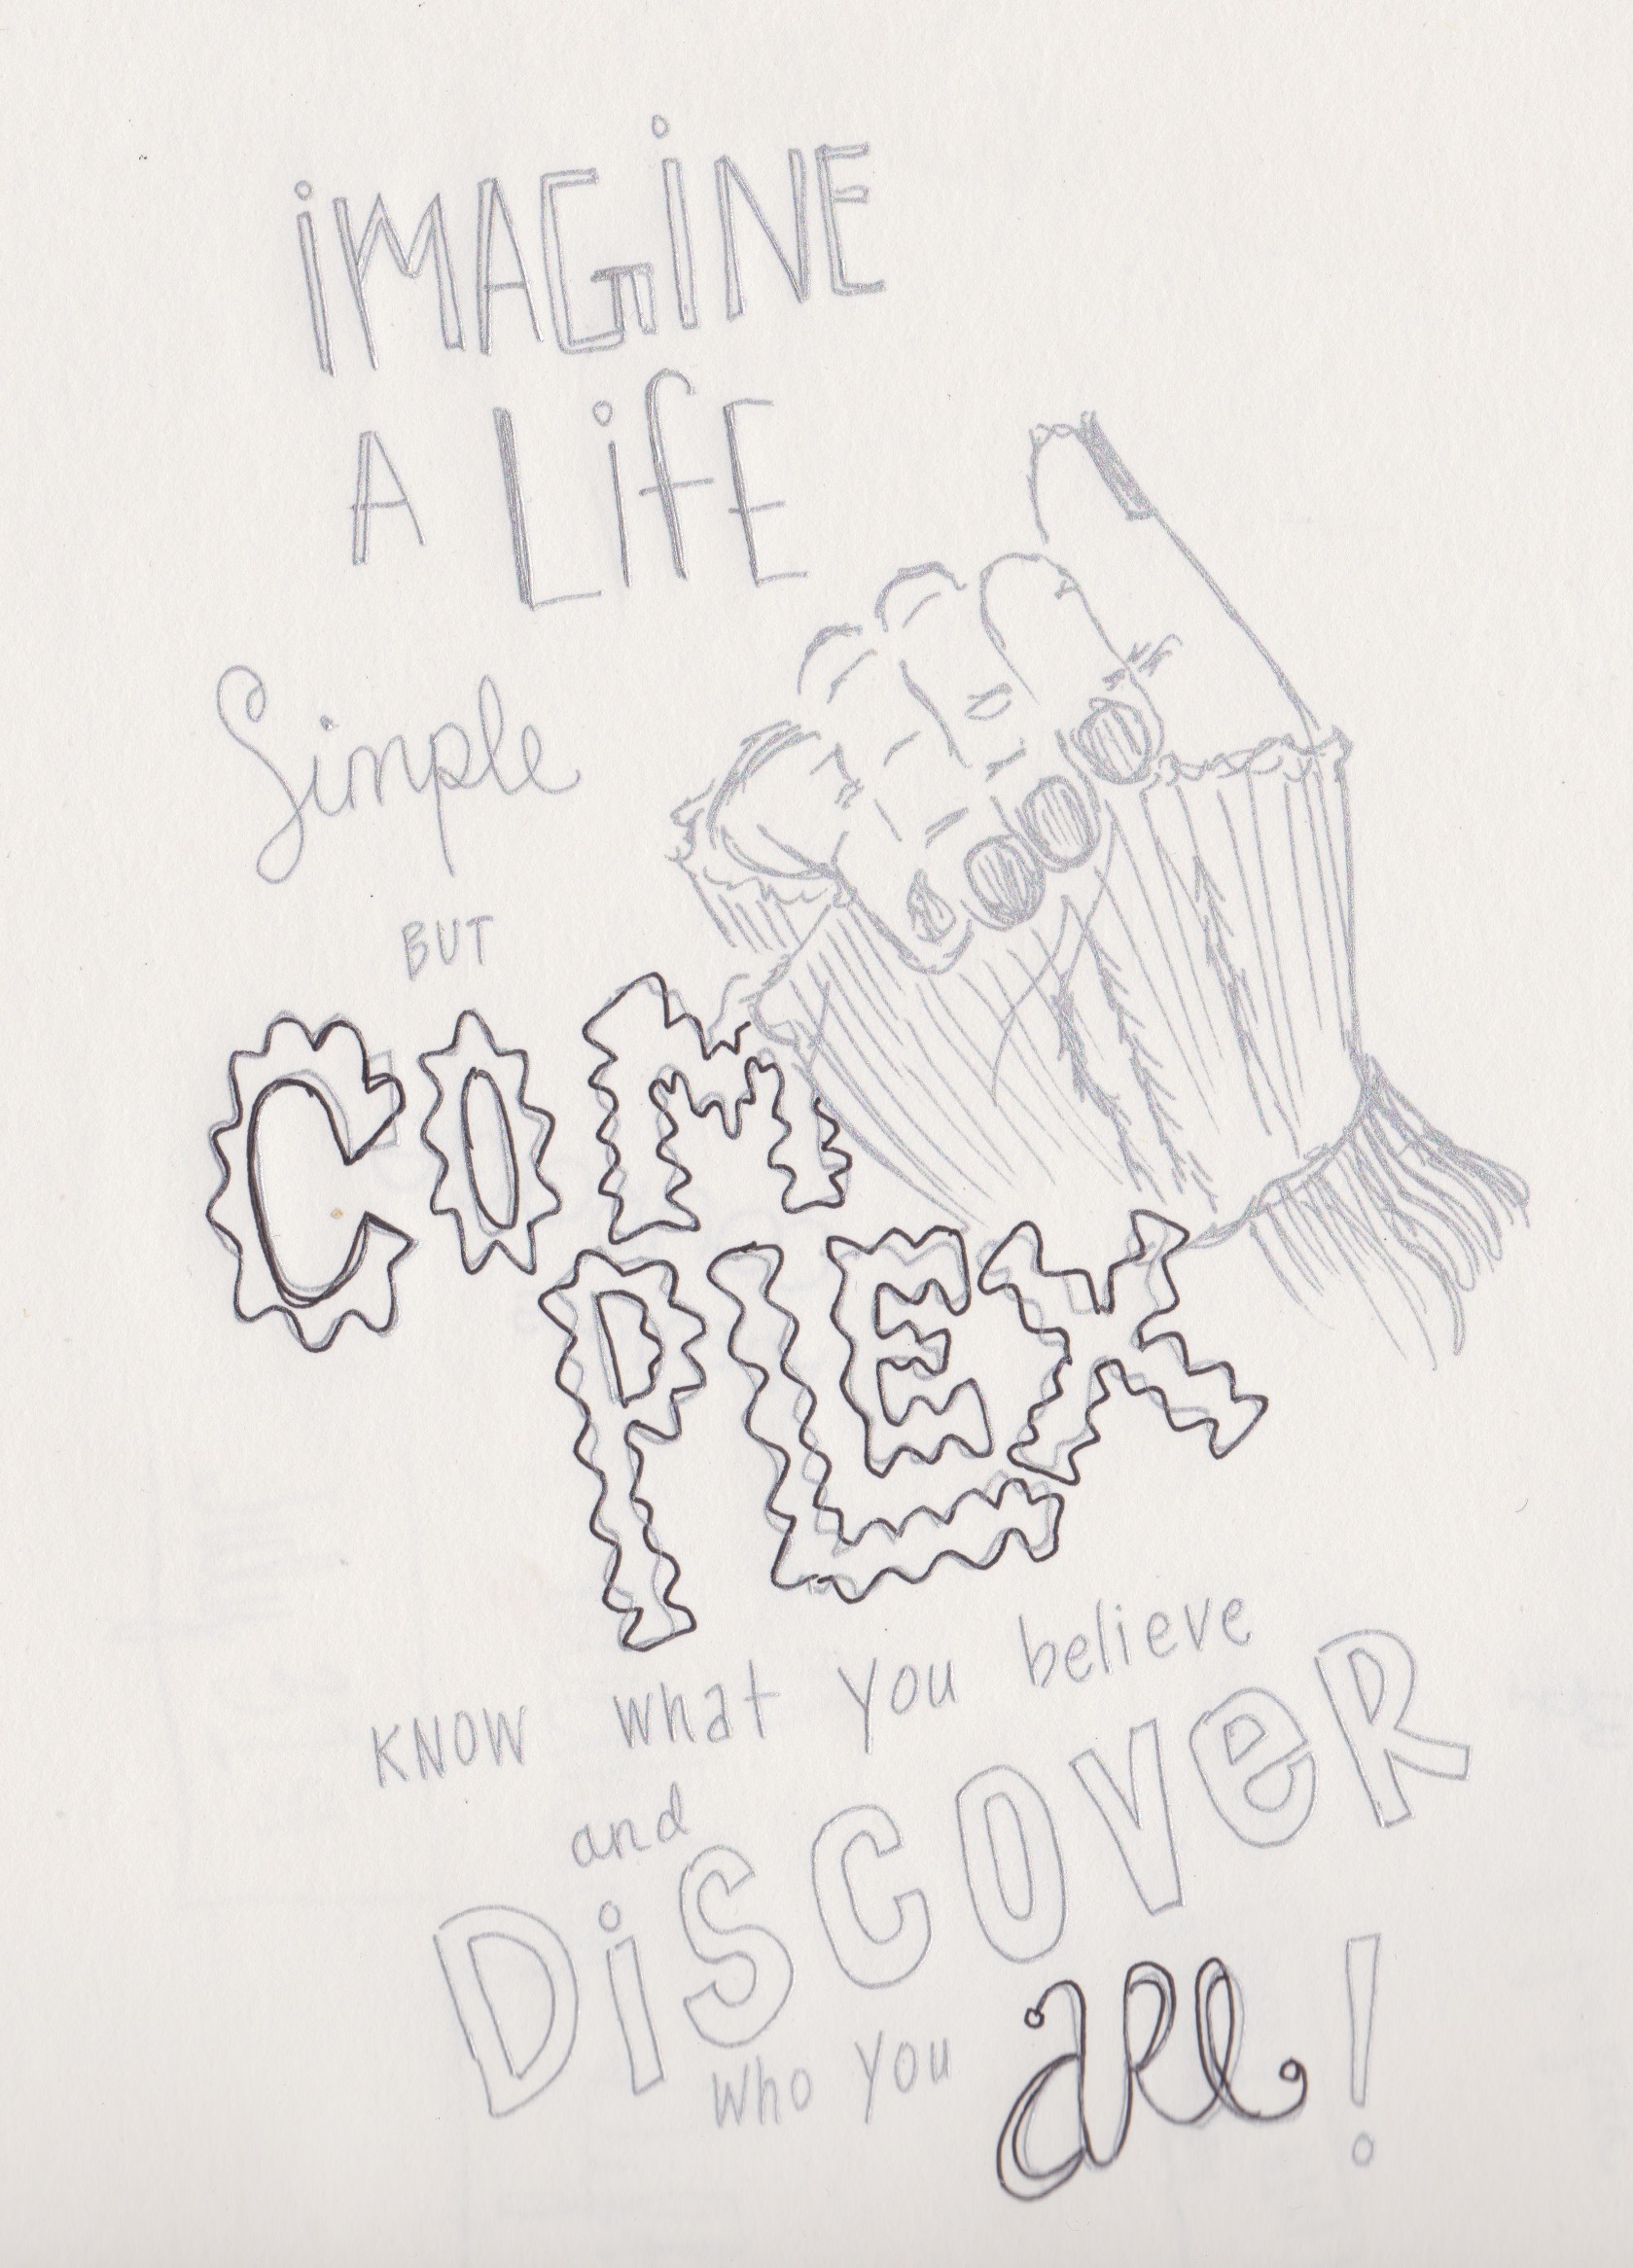 iMAGiNE
A LifE
Simple
BUT
COM
PLEX
KNOW what you believe
and
DiSCOVeR
who you are!